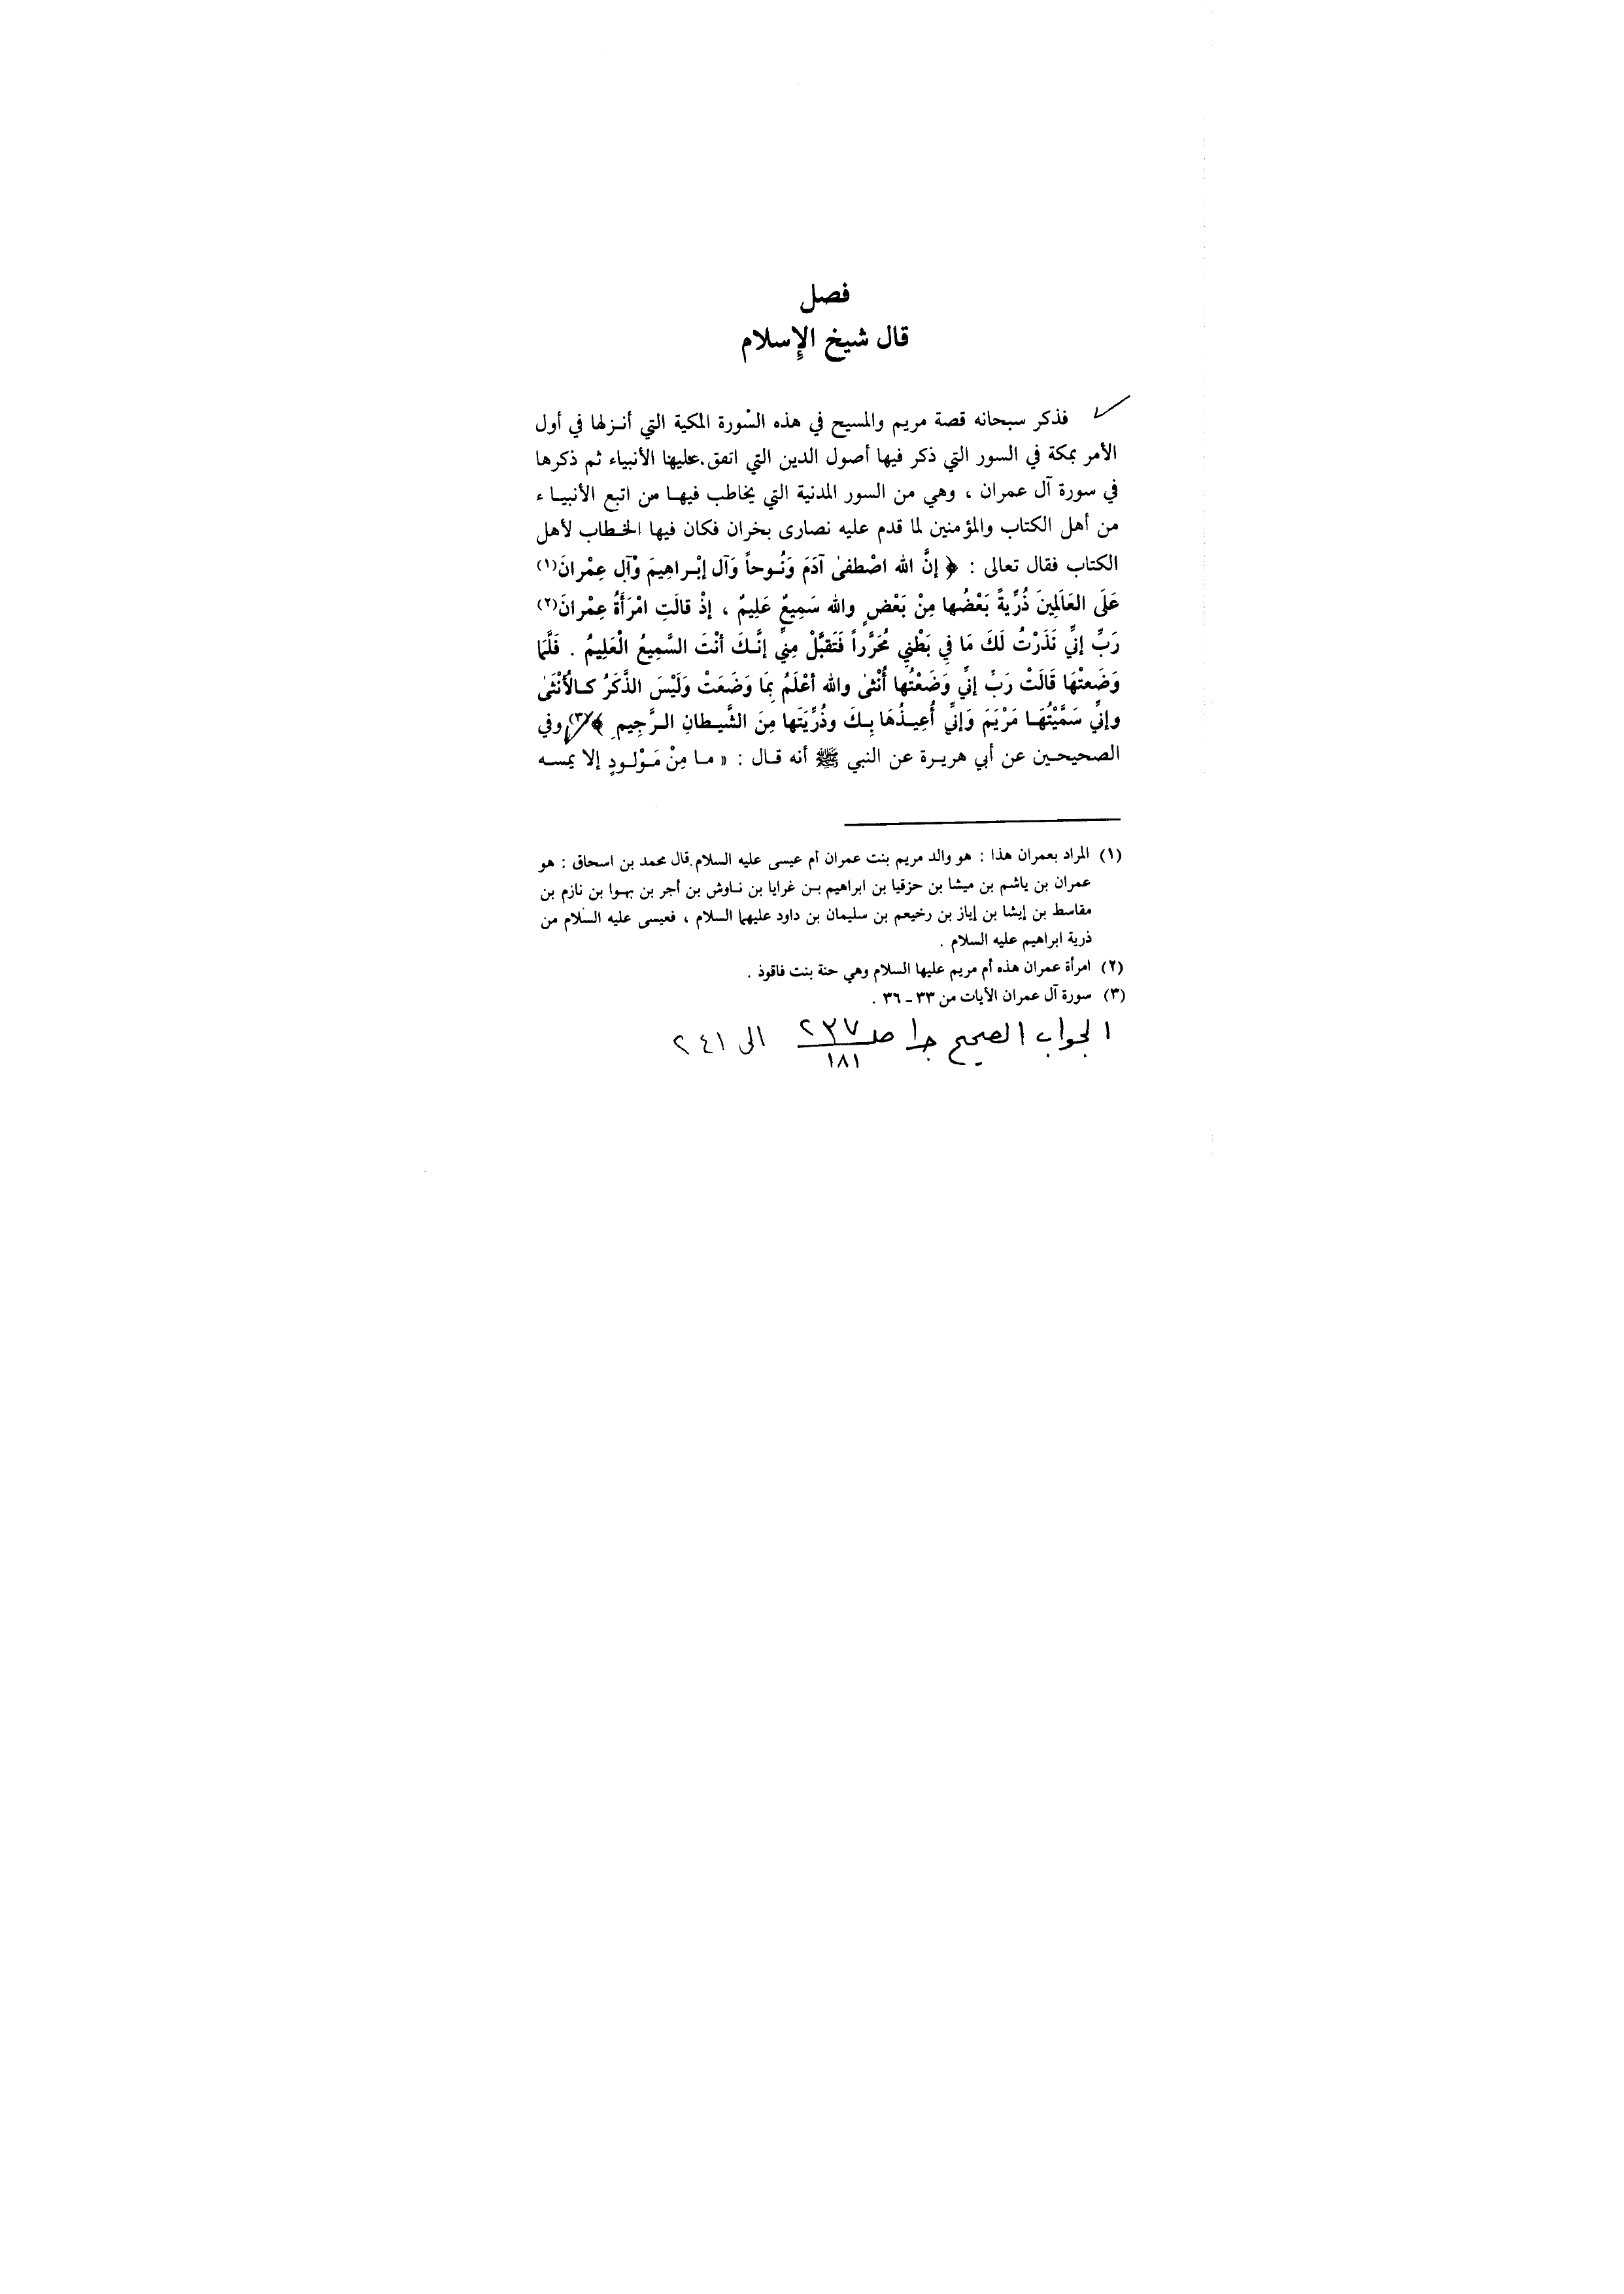 فصل
قال شيخ الإسلام
فذكر سبحانه قصة مريم والمسيح في هذه السورة المكية التي أنـزلها في أول
الأمر بمكة في السور التي ذكر فيها أصول الدين التي اتفق عليها الأنبياء ثم ذكرها
في سورة آل عمران ، وهي من السور المدنية التي يخاطب فيهـا من اتبع الأنبيـاء
من أهل الكتاب والمؤمنين لما قدم عليه نصارى بخران فكان فيها الخـطاب لأهل
الكتاب فقال تعالى : ﴿ إنَّ الله اصْطفىٰ آدَمَ وَنُـوحاً وَآل إبْـراهِيمَ وَآل عِمْرانَ(١)
عَلَى العَالَمِينَ ذُرِّيةً بَعْضُها مِنْ بَعْضٍ والله سَمِيعٌ عَلِيمٌ ، إذْ قالَتِ امْرَأَةُ عِمْرانَ(٢)
رَبِّ إنِّي نَذَرْتُ لَكَ مَا فِي بَطْنِي مُحَرَّراً فَتَقبَّلْ مِنِّي إنَّـكَ أنْتَ السَّمِيعُ الْعَلِيمُ . فَلَّمَا
وَضَعتْهَا قَالَتْ رَبِّ إنِّي وَضَعْتُها أُنْثىٰ والله أعْلَمُ بِمَا وَضَعَتْ وَلَيْسَ الذَّكَرُ كـالْأُنْثَىٰ
وإنِّي سَمَّيْتُهَـا مَرْيَمَ وَإنِّي أُعِيـذُهَا بِـكَ وذُرِّيَتَها مِنَ الشَّيـطانِ الـرَّجِيمِ ﴾(٣) وفي
الصحيحـين عن أبي هريـرة عن النبي ﷺ أنه قـال : « مـا مِنْ مَـوْلـودٍ إلا يمسـه
(١) المراد بعمران هذا : هو والد مريم بنت عمران أم عيسى عليه السلام . قال محمد بن اسحاق : هو
عمران بن ياشم بن ميشا بن حزقيا بن ابراهيم بـن غرايا بن نـاوش بن أجر بن بهـوا بن نازم بن
مقاسط بن إيشا بن إياز بن رخيعم بن سليمان بن داود عليهما السلام ، فعيسى عليه السلام من
ذرية ابراهيم عليه السلام .
(٢) امرأة عمران هذه أم مريم عليها السلام وهي حنة بنت فاقوذ .
(٣) سورة آل عمران الآيات من ٣٣ ـ ٣٦ .
الجواب الصحيح جـ١ صـ ٢٣٧ الى ٢٤١
١٨١